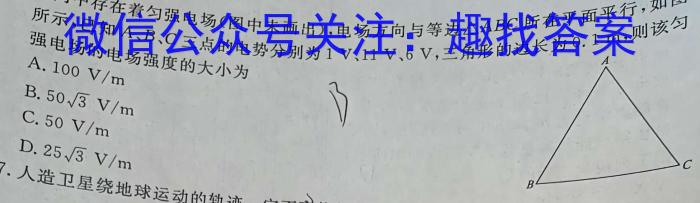 中存在着匀强电场(图中未画出),电场方向与等边△ABC所在平面平行,如图
所示。已知A、B、C三点的电势分别为1 V、11 V、6 V,三角形的边长为0.1 m,则该匀
强电场的电场强度的大小为
微信公众号关注:趣找答案
A. 100 V/m
B. 50√3 V/m
C. 50 V/m
D. 25√3 V/m
A
B
C
7. 人造卫星绕地球运动的轨迹